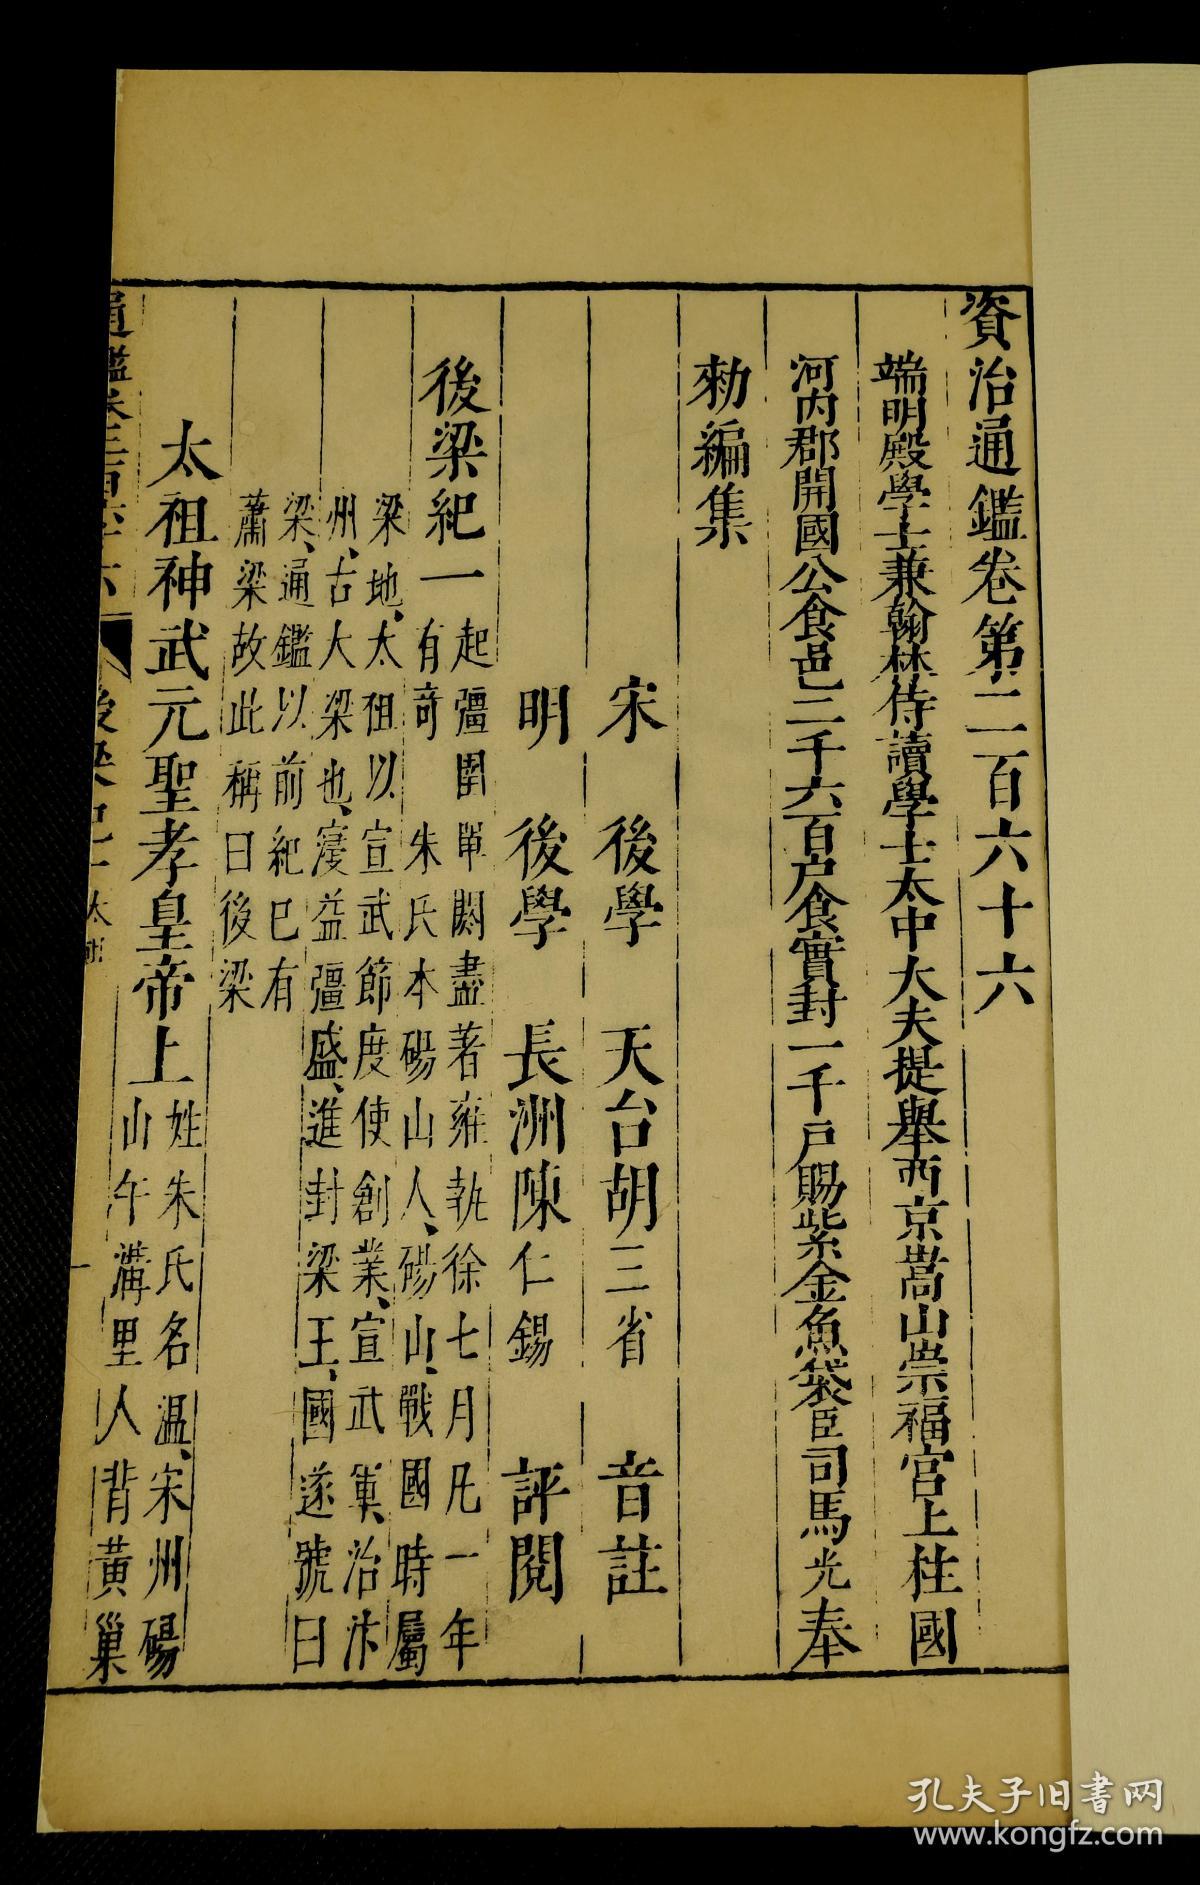 資治通鑑卷第二百六十六
端明殿學士兼翰林侍讀學士太中大夫提舉西京嵩山崇福宮上柱國
河内郡開國公食邑二千六百户食實封一千戸賜紫金魚袋臣司馬光奉
勑編集
宋 後學 天台胡三省 音註
明 後學 長洲陳仁錫 評閱
後梁紀一
起彊圉單閼盡著雍執徐七月凡一年
有竒 朱氏本碭山人、碭山、戰國時屬
梁地、太祖以宣武節度使創業、宣武軍、治汴
州、古大梁也、寖益彊盛、進封梁王、國遂號曰
梁、通鑑以前紀已有
蕭梁故此稱曰後梁
太祖神武元聖孝皇帝上
姓朱氏名温、宋州碭
山午溝里人背黃巢
通鑑卷二百六十六
後梁紀一
太祖
一
孔夫子旧书网
www.kongfz.com